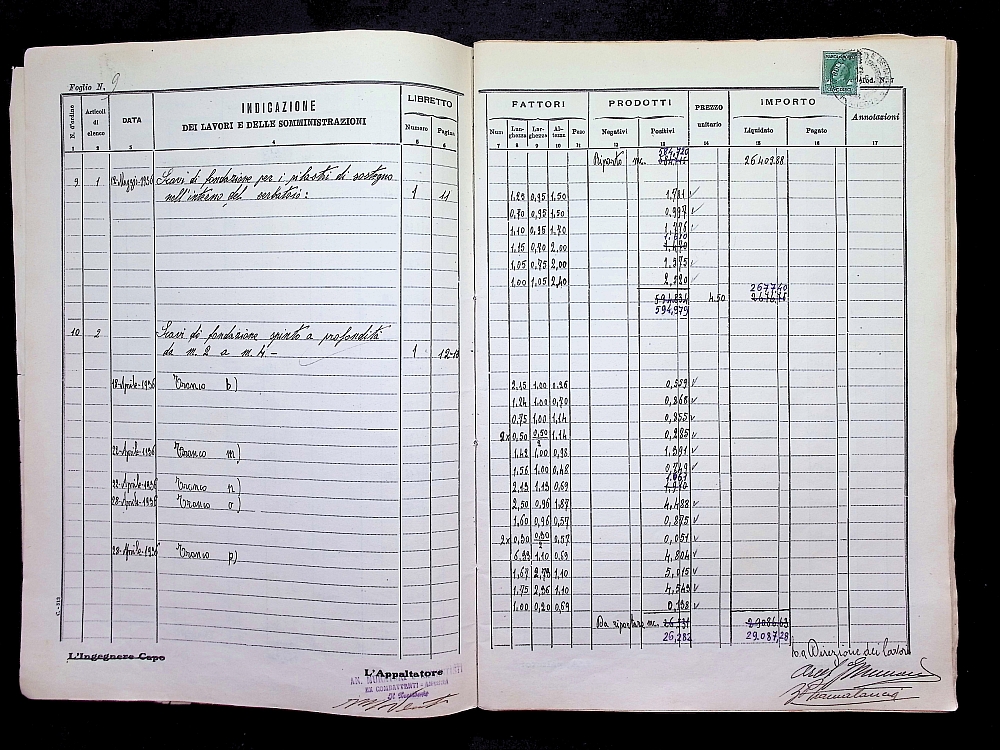 Foglio N. 9
N. d'ordine
Articoli di elenco
DATA
INDICAZIONE
DEI LAVORI E DELLE SOMMINISTRAZIONI
LIBRETTO
Numero
Pagina
1 2 3 4 5 6
9 1 12-Maggio-1936 Scavi di fondazione per i pilastri di sostegno 1 11
nell'interno del serbatoio:
10 2 Scavi di fondazione spinto a profondità
da m. 2 a m. 4.- 1
18-Aprile-1936 Tronco b)
22-Aprile-1936 Tronco m)
22-Aprile-1936 Tronco n)
28-Aprile-1936 Tronco o)
28-Aprile-1936 Tronco p)
C.-313
L'Ingegnere Capo
L'Appaltatore
EX COMBATTENTI
FATTORI
PRODOTTI
PREZZO unitario
IMPORTO
Annotazioni
Num Lunghezza Larghezza Altezza Peso Negativi Positivi Liquidato Pagato
7 8 9 10 11 12 13 14 15 16 17
Riporto mc. 584,720 26409.88
1.20 0,95 1.50
0,70 0,98 1,50
1,10 0,95 1.70
1,15 0,70 2.00 1.610
1,05 0,75 2,00 1.575
1.00 1.05 2,40 2.520
26774,0
594,834 4.50
594,979
2,15 1.00 0,26 0.559
1,24 1.00 0,70 0,868
0,75 1,00 1,14 0,855
2x 0,50 0,50/2 1,14 0,285
1,42 1,00 0,98 1,391
1,56 1.00 0,48 0,749
2,13 1,13 0,69 1.661
2,50 0,96 1,87 4.488
1,60 0,96 0,57 0,875
2x 0,30 0,30/2 0,57 0,051
6.33 1,10 0,69 4,804
1,67 2,73 1,10 5,015
1.75 2,36 1,10 4,543
1,00 0,20 0,69 0,138
Da riportare mc. 26,331 29086,63
26,282 29.087,28
La Direzione dei lavori